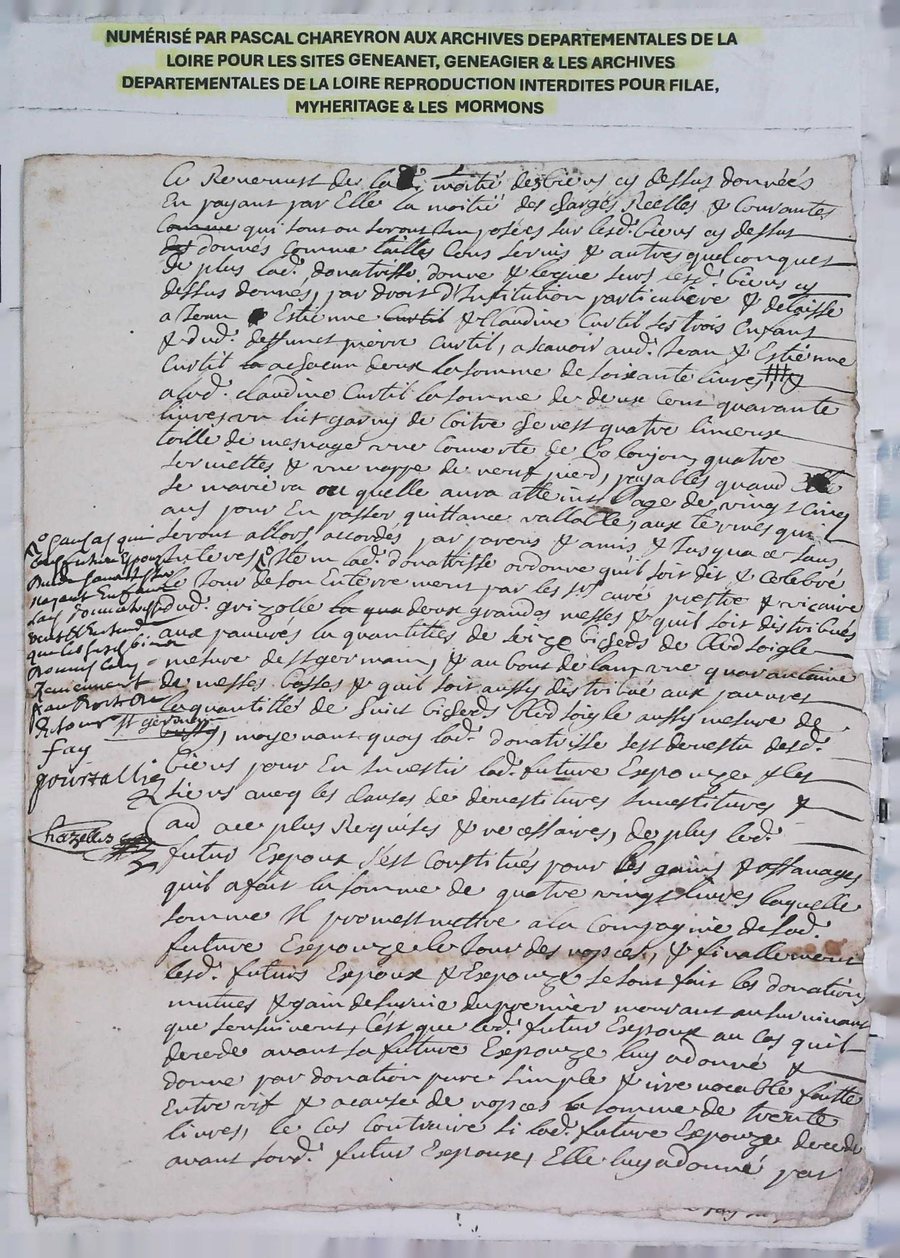 NUMÉRISÉ PAR PASCAL CHAREYRON AUX ARCHIVES DEPARTEMENTALES DE LA
LOIRE POUR LES SITES GENEANET, GENEAGIER & LES ARCHIVES
DEPARTEMENTALES DE LA LOIRE REPRODUCTION INTERDITES POUR FILAE,
MYHERITAGE & LES MORMONS
Revenust de lad. moitié des biens cy dessus données
En payant par Elle la moitié des charges Reelles & Courantes
qui sont ou seront Imposées sur lesd. biens cy dessus
donnés comme tailles Cens servis & autres quelconques
De plus lad. donatrisse donne & legue surs lesd. biens cy
dessus donnés, par droit d'Institution particulière & delaisse
a Jean Estienne Curtil & Claudine Curtil ses trois Enfans
& dud. deffunct pierre Curtil, ascavoir aud. Jean & Estienne
Curtil a chacun deux la somme de soixante livres, &
a lad. claudine Curtil la somme de deux cent quarante
livres, un lict garnis de Coitre quatre
toille de mesnage une Couverte de quatre
serviettes & une nappe de neuf pied, payables quand
se mariera ou quelle aura atteinst l'age de vingt Cinq
ans pour En passer quittance vallable, aux termes qui
seront allors accordés par parens & amis & Jusqua ce sans
Interes, Item lad. donatrisse ordonne qu'il soit dit & celebré
le Jour de son Enterrement par les srs curé prestre & vicaire
dud. grizolle la qua deux grandes messes & qu'il soit distribués
aux pauvres la quantittés de seize bichers de bled soigle
mesure de st germain, & au bout de lan une quarantaine
de messes basses & quil soit aussy distribué aux pauvres
la quantitté de huict bicheds bled soigle aussy mesure de
st germain, moyenant quoy lad. donatrisse sest devestu desd.
biens pour En Investir lad. future Expouze & les
siens avecq les clauses de devestitures Investitures &
au
ace plus Requises & necessaires, de plus led.
futur Expoux s'est Constitués pour les gains &
quil a fait la somme de quatre vingt livres laquelle
somme Il promest mettre a la Compagnie de lad.
future Expouze le Jour des nopces, & finallement
lesd. futurs Expoux & Expouze se sont fait les donations
mutues & gain de survie du premier mourant au survivant
que sensuivent, C'est que led. futur Expoux au cas quil
decede avant sa future Expouze luy a donné &
donne par donation pure simple & irrevocable faitte
Entre vif & a cause de nopces la somme de trente
livres, le cas Contraire si lad. future Expouze decede
avant sond. futur Expoux, Elle luy a donné par
au cas qui
pour
Enfans
bien
fay
Chazelles